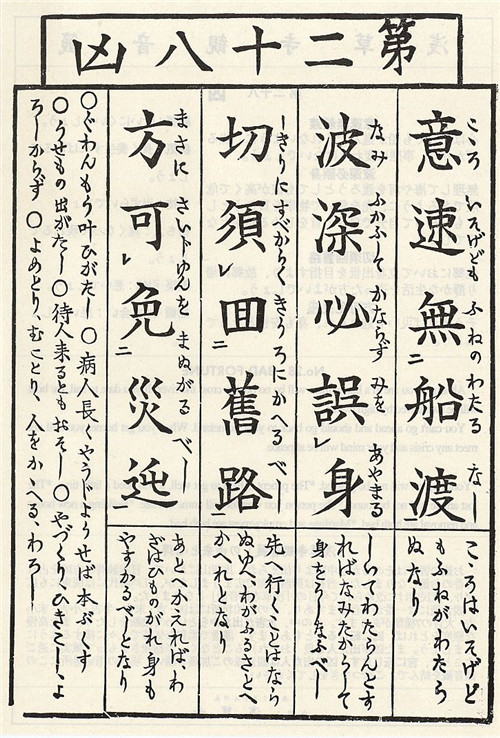 第二十八凶
こゝろ いそげども ふねのわたる なし
意速無二船渡
こゝろはいそげど
もふねがわたら
ぬなり
なみ ふかふして かならず みを あやまる
波深必誤レ身
しいてわたらんとす
ればなみたかくして
身をうしなふべし
しきりにすべからくきうろにかへるべし
切須レ囬二舊路
先へ行くことはなら
ぬゆへ、わがふるさとへ
かへれとなし
まさに さいどゆんを まぬがる べし
方可レ免二災迍一
あとへかえれば、わ
ざはひものがれ身も
やすかるべしとなり
○ぐわんもう叶ひがたし ○病人長くやうじようせば本ぶくす
○うせもの出がたし○待人来るともおそし○やづくり、ひきこし、よ
ろしからず ○よめとり、むことり、人をかゝへる、わろし